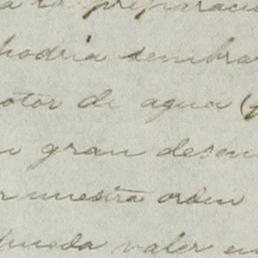 a la preparaci
podria sembra
otor de agua (p
n gran descu
r nuestra orden
pueda valer en